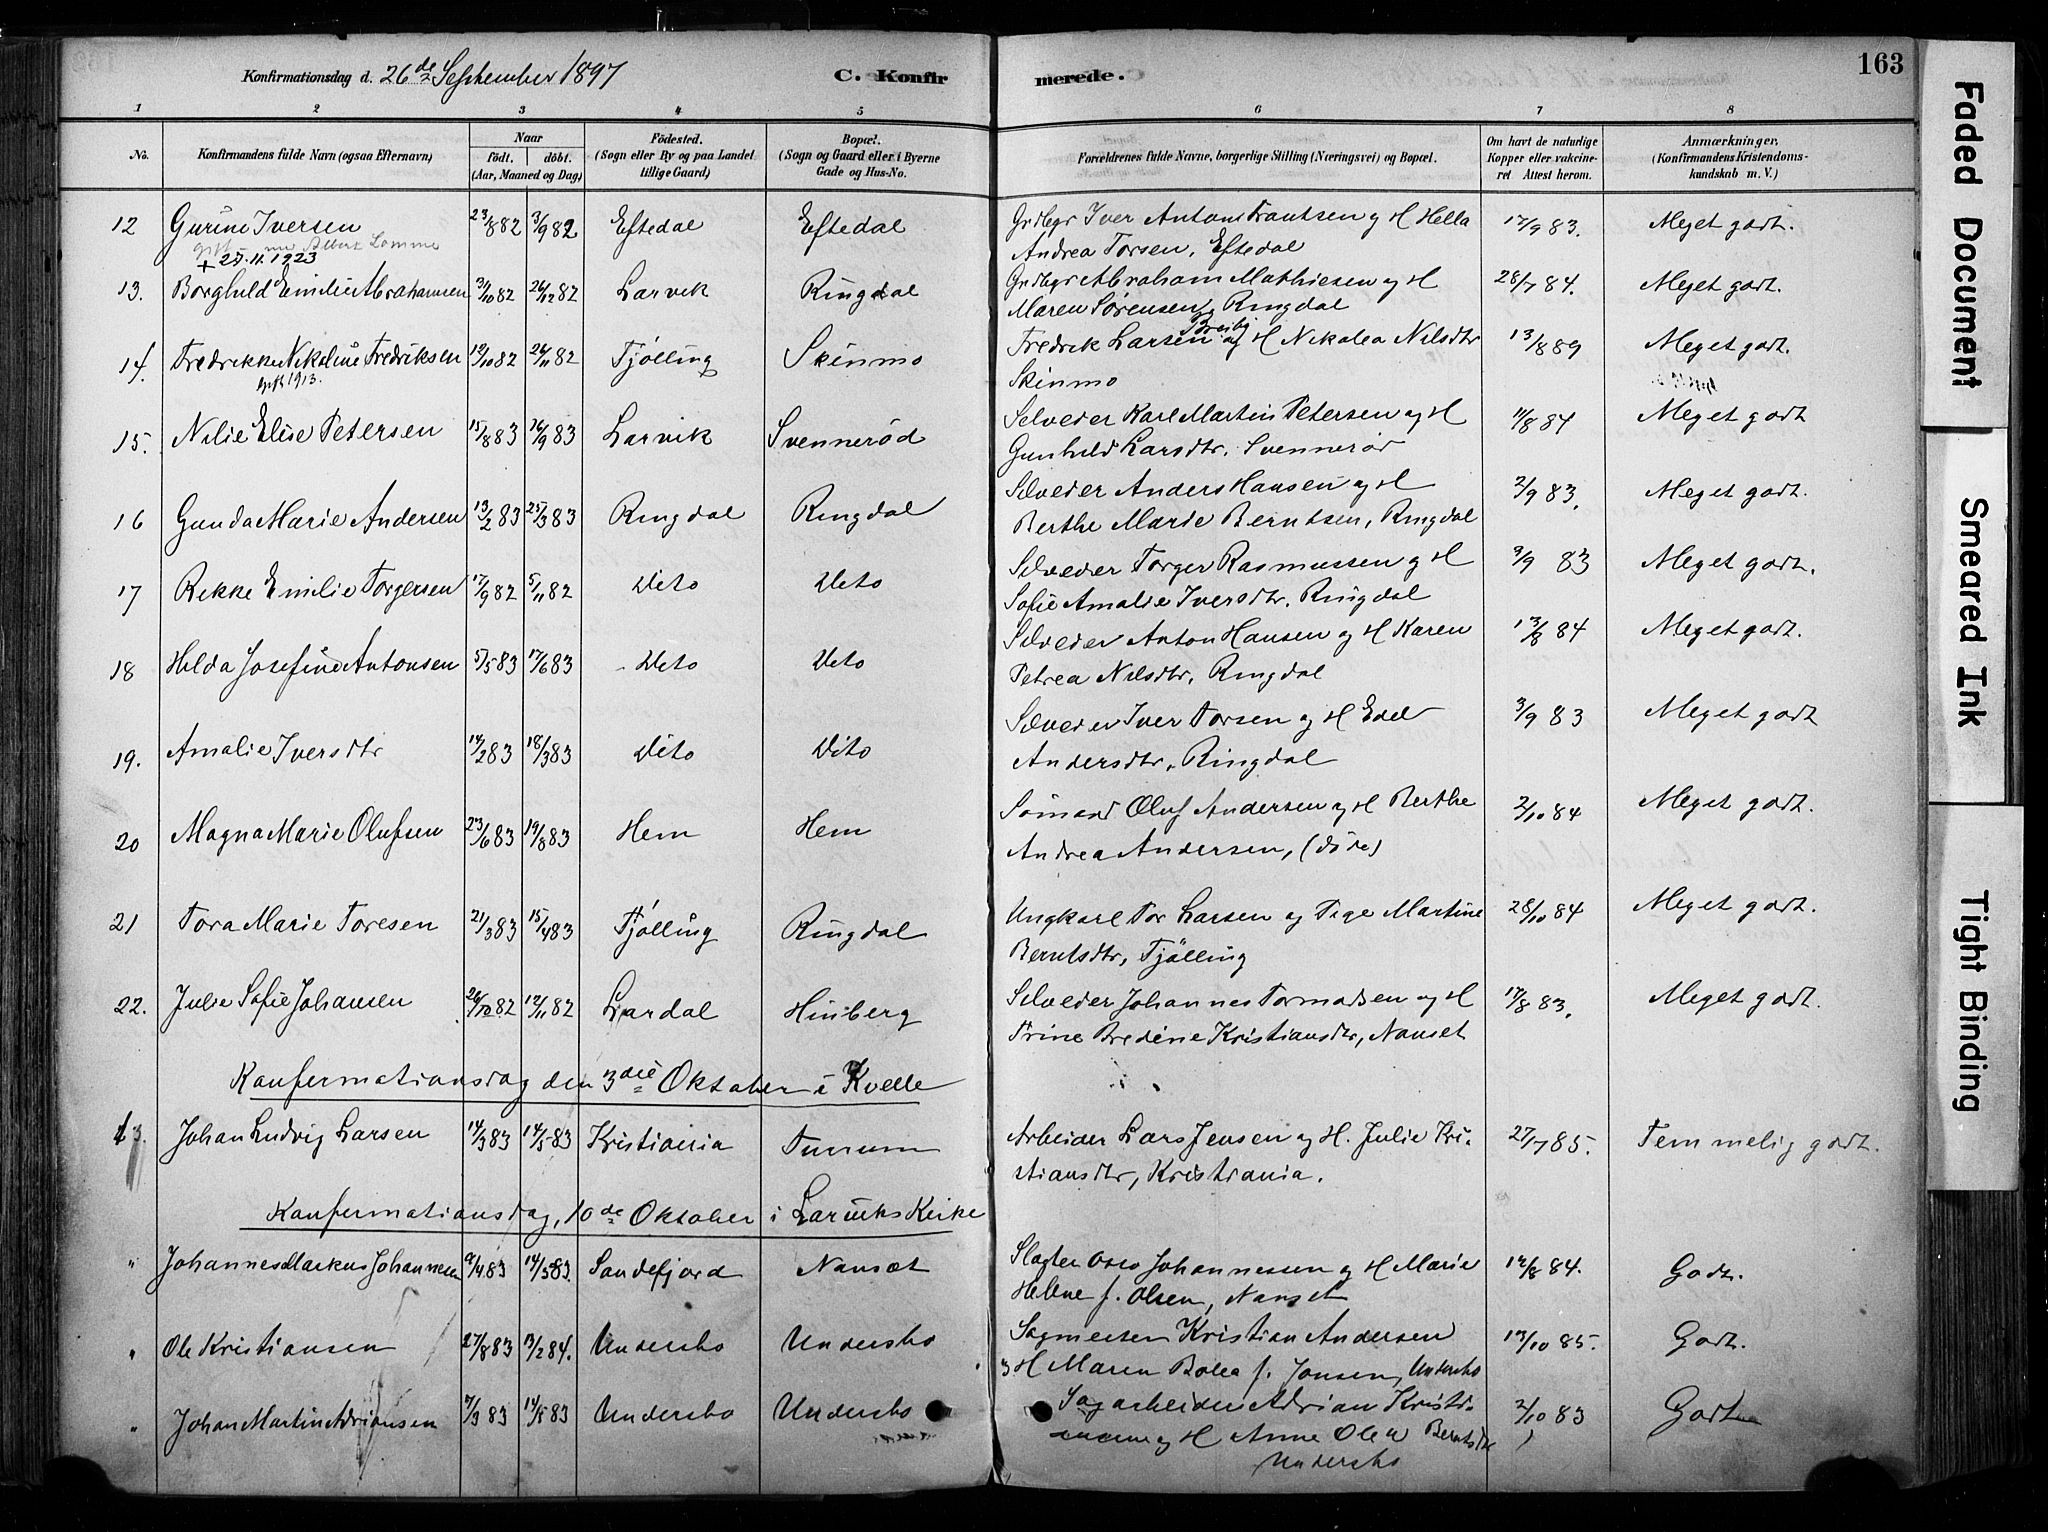 Konfirmationsdag d. 26de September 1897 C. Konfirmerede. 163
1 2 3 4 5 6 7 8
No. Konfirmandens fulde Navn (ogsaa Efternavn) Naar födt. döbt. (Aar, Maaned og Dag) Födested. (Sogn eller By og paa Landet tillige Gaard) Bopæl. (Sogn og Gaard eller i Byerne Gade og Hus-No. Forældrenes fulde Navne, borgerlige Stilling (Næringsvei) og Bopæl. Om havt de naturlige Kopper eller vakcineret Attest herom. Anmærkninger. (Konfirmandens Kristendomskundskab m. V.)
12 Gurine Iversen 23/8 82 3/9 82 Eftedal Eftedal Grdbgr Iver Anton Frantsen og H Hella 17/9 83. Meget godt.
gift med Albert Lamme Andrea Torsen, Eftedal
+ 25.11.1923
13. Borghild Emilie Abrahamsen 3/10 82 26/12 82 Larvik Ringdal Grdbgr Abraham Mathiesen og H 28/7 84. Meget godt.
Maren Sørensen, Ringdal
14. Fredrikke Nikoline Fredriksen 12/10 82 26/11 82 Tjølling Skinmo Fredrik Larsen og H Nikolea Nilsdtr 13/8 89 Meget godt.
gift 1913. Skinmo
15. Nilie Elise Petersen 15/8 83 16/9 83 Larvik Svennerød Selveder Karl Martin Petersen og H 11/8 84 Meget godt
Gunhild Larsdtr. Svennerød
16 Gunda Marie Andersen 13/2 83 25/3 83 Ringdal Ringdal Selveder Anders Hansen og H 2/9 83. Meget godt.
Berthe Marie Berntsen, Ringdal
17 Rikke Emilie Torgersen 17/9 82 5/11 82 Dito Dito Selveder Torger Rasmussen og H 2/9 83 Meget godt.
Sofie Amalie Iversdtr. Ringdal
18 Hilda Josefine Antonsen 5/5 83 17/6 83 Dito Dito Selveder Anton Hansen og H Karen 13/8 84 Meget godt.
Petrea Nilsdtr, Ringdal
19. Amalie Iversdtr 14/2 83 18/3 83 Dito Dito Selveder Iver Torsen og H Edel 3/9 83 Meget godt
Andersdtr, Ringdal
20 Magna Marie Olufsen 23/6 83 19/8 83 Hem Hem Sömand Oluf Andersen og H Berthe 2/10 84 Meget godt.
Andrea Andersen, (döde)
21 Tora Marie Toresen 21/3 83 15/4 83 Tjölling Ringdal Ungkarl Tor Larsen og Pige Martine 28/10 84 Meget godt.
Berntsdtr, Tjölling
22. Julie Sofie Johansen 26/10 82 12/11 82 Lardal Hinberg Selveder Johannes Tormodsen og H 17/8 83. Meget godt.
Trine Bredine Kristiansdtr, Nanset
Konfirmationsdag den 3die Oktober i Kvelle
Johan Ludvig Larsen 14/3 83 14/5 83 Kristiania Arbeider Lars Jensen og H. Julie Kri- 27/7 85. Temmelig godt.
stiansdtr, Kristiania.
Konfirmationsdag, 10de Oktober i Larviks Kirke
" Johannes Markus Johannesen 9/4 83 14/5 83. Sandefjord Nanset Slagter Johannessen og H Marie 12/8 84. Godt.
Helene f. Olsen, Nanset
" Ole Kristiansen 27/8 83 13/2 84. Undersbo Undersbo Sagmester Kristian Andersen 13/10 85. Godt.
og H Maren Bolea f. Jonsen, Undersbo
" Johan Martin Adriansen 7/3 83 14/5 83 Undersbo Undersbo Sagarbeider Adrian Kristi- 2/10 83 Godt
og H Anne Olea Berntsdtr
Undersbo
Faded Document
Smeared Ink
Tight Binding